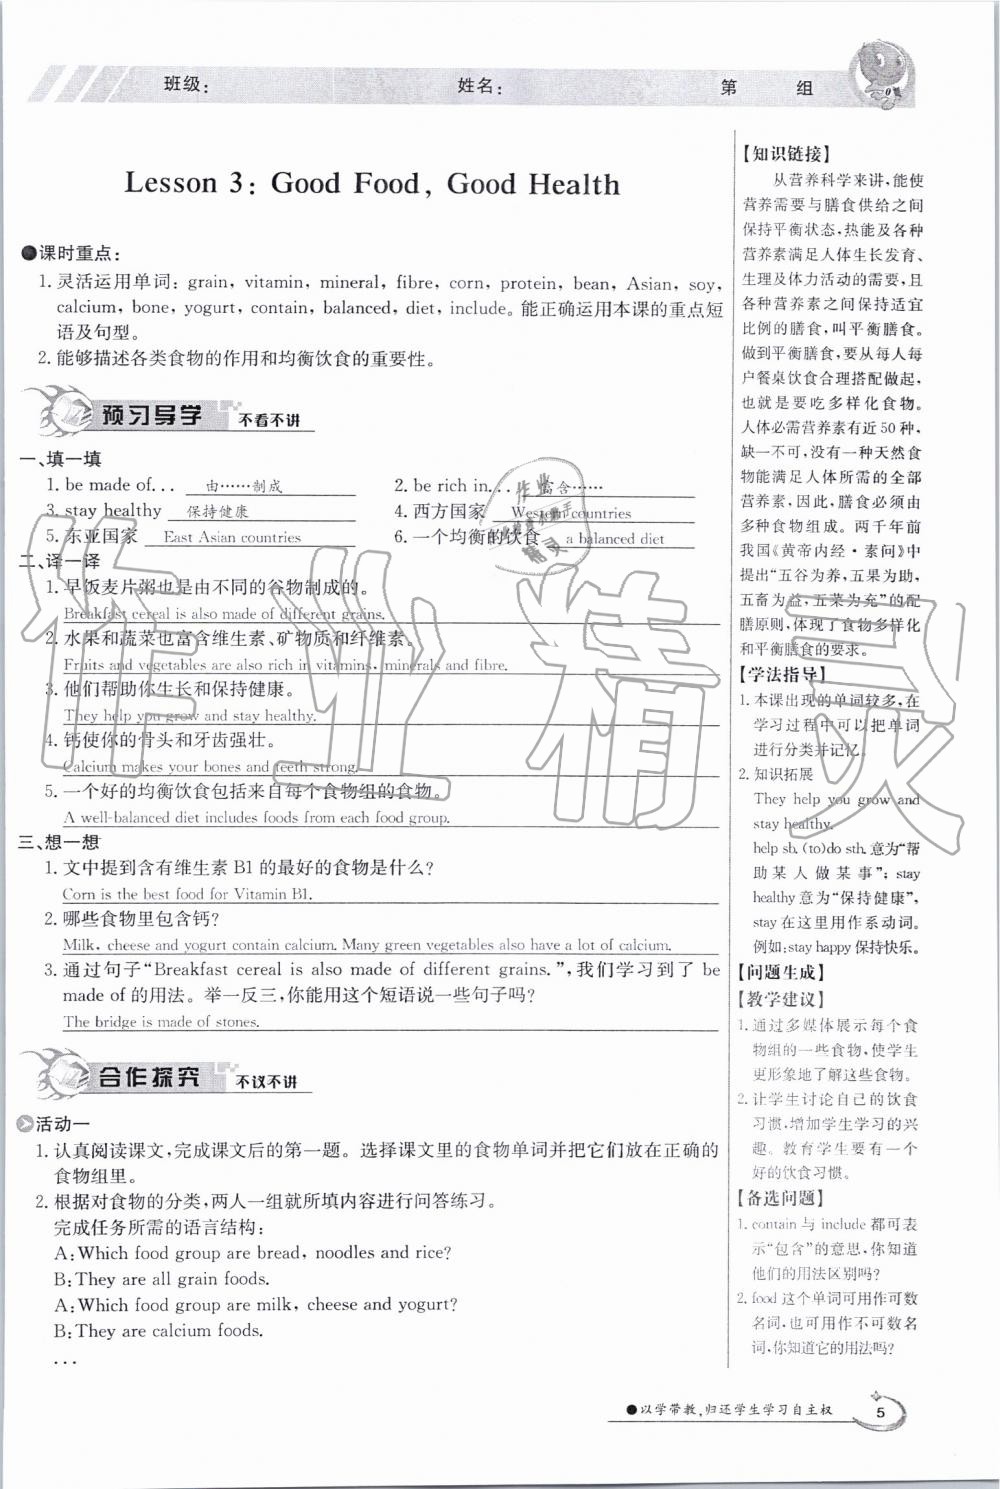 班级： 姓名： 第 组
Lesson 3: Good Food, Good Health
●课时重点：
1. 灵活运用单词：grain, vitamin, mineral, fibre, corn, protein, bean, Asian, soy,
calcium, bone, yogurt, contain, balanced, diet, include。能正确运用本课的重点短
语及句型。
2. 能够描述各类食物的作用和均衡饮食的重要性。
预习导学 不看不讲
一、填一填
1. be made of... 由……制成 2. be rich in... 富含……
3. stay healthy 保持健康 4. 西方国家 Western countries
5. 东亚国家 East Asian countries 6. 一个均衡的饮食 a balanced diet
二、译一译
1. 早饭麦片粥也是由不同的谷物制成的。
Breakfast cereal is also made of different grains.
2. 水果和蔬菜也富含维生素、矿物质和纤维素。
Fruits and vegetables are also rich in vitamins, minerals and fibre.
3. 他们帮助你生长和保持健康。
They help you grow and stay healthy.
4. 钙使你的骨头和牙齿强壮。
Calcium makes your bones and teeth strong.
5. 一个好的均衡饮食包括来自每个食物组的食物。
A well-balanced diet includes foods from each food group.
三、想一想
1. 文中提到含有维生素 B1 的最好的食物是什么?
Corn is the best food for Vitamin B1.
2. 哪些食物里包含钙?
Milk, cheese and yogurt contain calcium. Many green vegetables also have a lot of calcium.
3. 通过句子“Breakfast cereal is also made of different grains.”,我们学习到了 be
made of 的用法。举一反三,你能用这个短语说一些句子吗?
The bridge is made of stones.
合作探究 不议不讲
活动一
1. 认真阅读课文,完成课文后的第一题。选择课文里的食物单词并把它们放在正确的
食物组里。
2. 根据对食物的分类,两人一组就所填内容进行问答练习。
完成任务所需的语言结构：
A: Which food group are bread, noodles and rice?
B: They are all grain foods.
A: Which food group are milk, cheese and yogurt?
B: They are calcium foods.
...
【知识链接】
从营养科学来讲,能使
营养需要与膳食供给之间
保持平衡状态,热能及各种
营养素满足人体生长发育、
生理及体力活动的需要,且
各种营养素之间保持适宜
比例的膳食,叫平衡膳食。
做到平衡膳食,要从每人每
户餐桌饮食合理搭配做起,
也就是要吃多样化食物。
人体必需营养素有近 50 种,
缺一不可,没有一种天然食
物能满足人体所需的全部
营养素,因此,膳食必须由
多种食物组成。两千年前
我国《黄帝内经·素问》中
提出“五谷为养,五果为助,
五畜为益,五菜为充”的配
膳原则,体现了食物多样化
和平衡膳食的要求。
【学法指导】
1. 本课出现的单词较多,在
学习过程中可以把单词
进行分类并记忆。
2. 知识拓展
They help you grow and
stay healthy.
help sb. (to)do sth. 意为“帮
助某人做某事”; stay
healthy 意为“保持健康”,
stay 在这里用作系动词。
例如:stay happy 保持快乐。
【问题生成】
【教学建议】
1. 通过多媒体展示每个食
物组的一些食物,使学生
更形象地了解这些食物。
2. 让学生讨论自己的饮食
习惯,增加学生学习的兴
趣。教育学生要有一个
好的饮食习惯。
【备选问题】
1. contain 与 include 都可表
示“包含”的意思,你知道
他们的用法区别吗?
2. food 这个单词可用作可数
名词,也可用作不可数名
词,你知道它的用法吗?
●以学带教,归还学生学习自主权 5
作业精灵